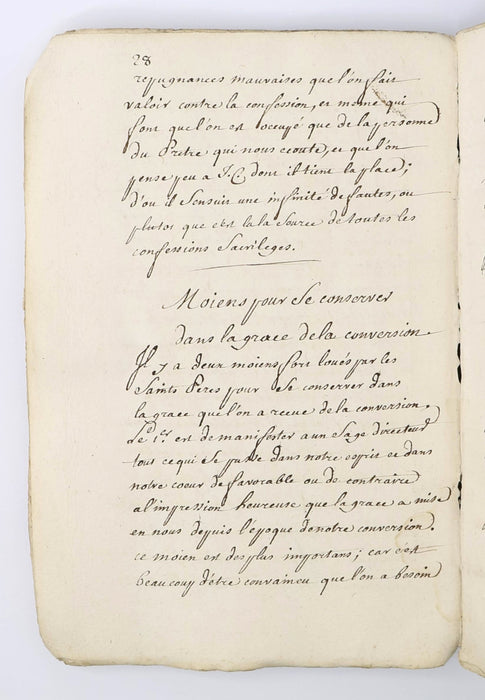 28
repugnances mauvaises que l'on fait
valoir contre la confession, et meme qui
font que l'on est occupé que de la personne
du Pretre qui nous ecoute, et que l'on
pense peu a J.C. dont il tient la place;
d'ou il s'ensuit une infinité de fautes, ou
plutot que c'est la la source de toutes les
confessions Sacrileges.
Moiens pour se conserver
dans la grace de la conversion.
Il y a deux moiens fort loués par les
Saints Peres pour se conserver dans
la grace que l'on a recue de la conversion.
Le 1er est de manifester a un Sage directeur
tout ce qui se passe dans notre esprit et dans
notre coeur de favorable ou de contraire
a l'impression heureuse que la grace a mise
en nous depuis l'époque de notre conversion.
ce moien est des plus importans; car c'est
beaucoup d'être convaincu que l'on a besoin